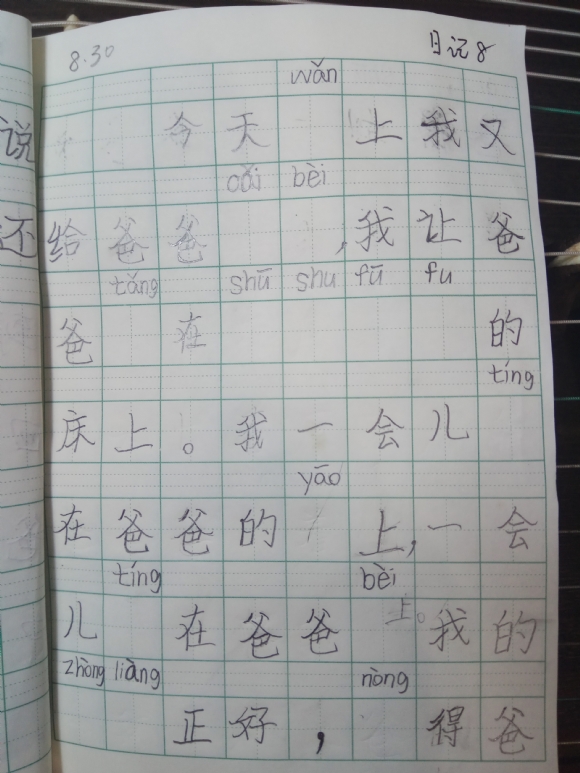 8.30 日记8
wǎn
说 今天 上我又
cǎi bèi
还 给爸爸 ,我让爸
tǎng shū shu fū fu
爸 在 的
tíng
床上。我一会儿
yāo
在爸爸的 上,一会
tíng bèi
儿 在爸爸 上。我的
zhòng liàng nòng
正好, 得爸